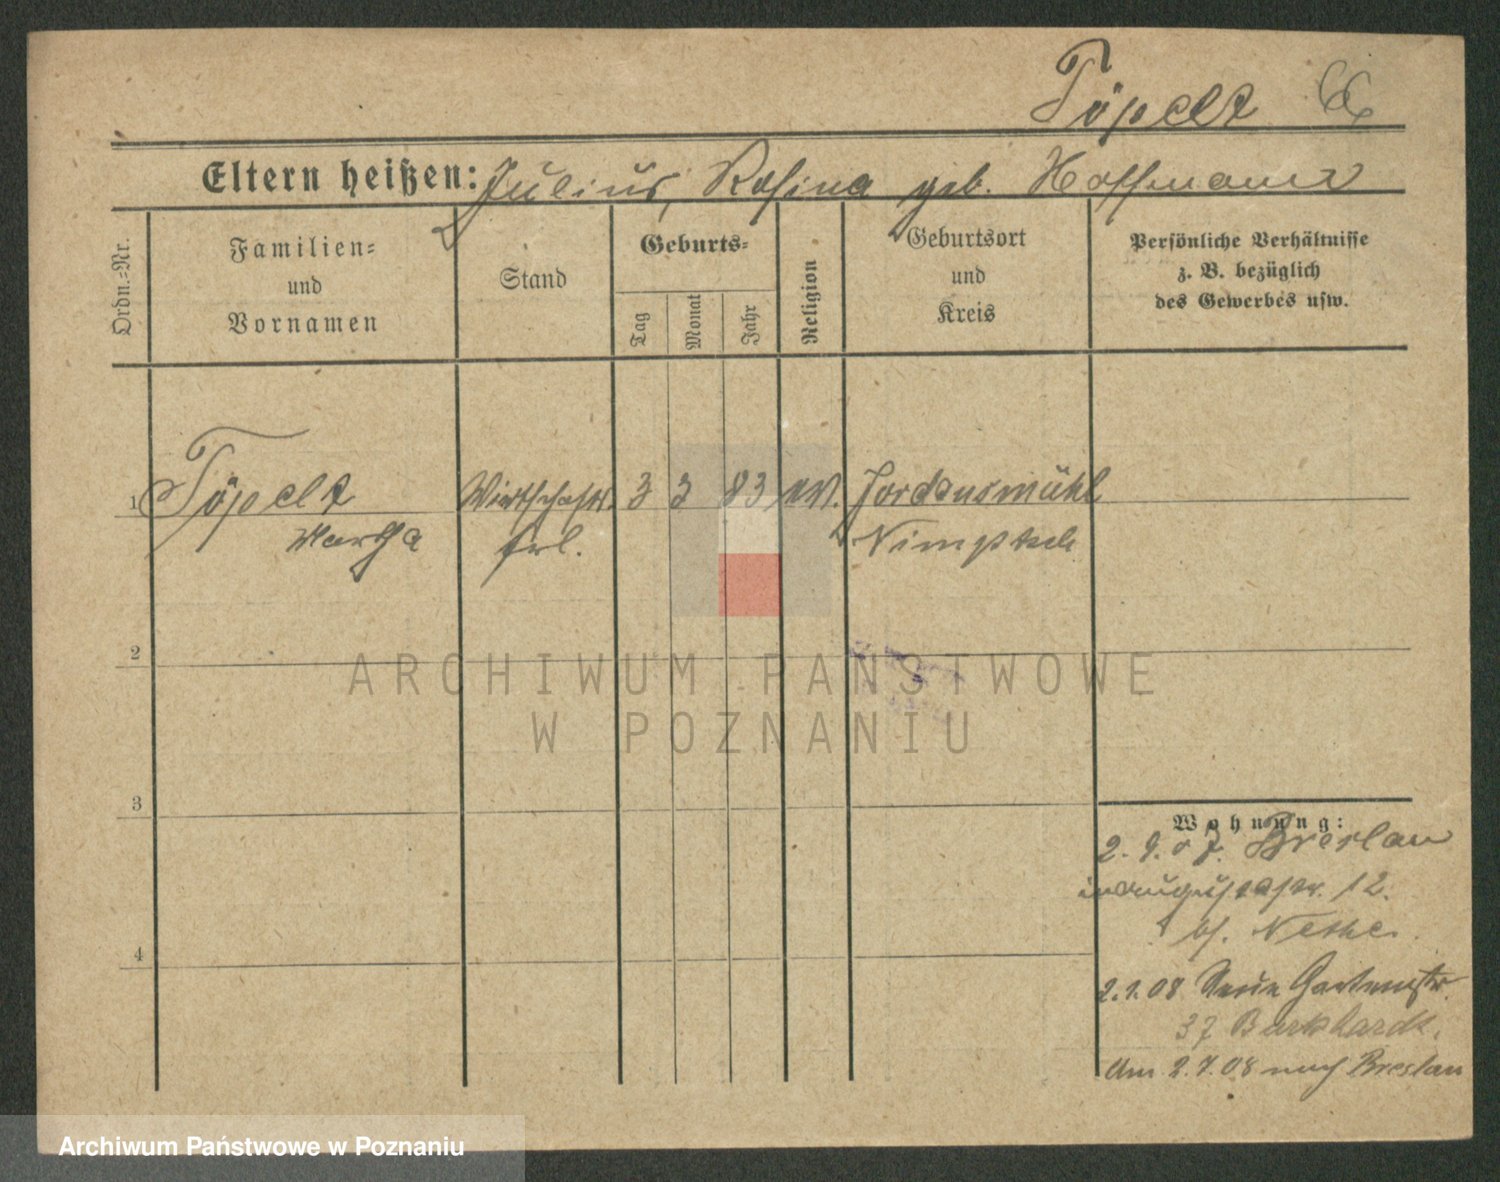 Töpelt
Eltern heißen: Julius, Rosina geb. Hoffmann
Ordn.-Nr.
Familien-
und
Vornamen
Stand
Geburts-
Tag
Monat
Jahr
Religion
Geburtsort
und
Kreis
Persönliche Verhältnisse
z. B. bezüglich
des Gewerbes usw.
1 Töpelt Wirtschafts. 3 3 83 ev. Jordansmühl
Martha frl. Nimptsch
2
ARCHIWUM PAŃSTWOWE
W POZNANIU
3
Wohnung:
2. 9. 07. Breslau
Augustastr. 12.
b/. Nethe.
4
2.1.08 Neue Gartenstr.
37 Burkhardt.
Am 2.7.08 nach Breslau
Archiwum Państwowe w Poznaniu